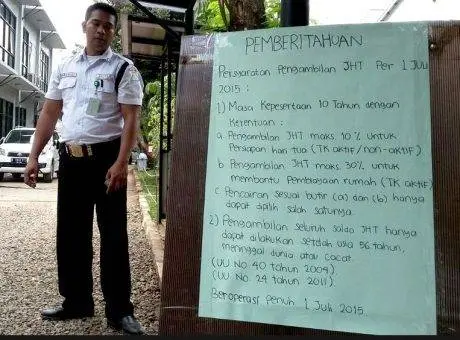 PEMBERITAHUAN
Persyaratan Pengambilan JHT Per 1 JULI
2015 :
1) Masa Kepesertaan 10 Tahun dengan
Ketentuan :
a Pengambilan JHT maks. 10% untuk
Persiapan hari tua (TK aktif/non-aktif)
b Pengambilan JHT maks. 30% untuk
membantu Pembiayaan rumah (TK aktif)
c Pencairan sesuai butir (a) dan (b) hanya
dapat dipilih salah satunya.
2) Pengambilan seluruh saldo JHT hanya
dapat dilakukan setelah usia 56 tahun,
meninggal dunia atau cacat.
(UU No. 40 tahun 2004).
(UU No. 24 tahun 2011).
Beroperasi penuh 1 Juli 2015.